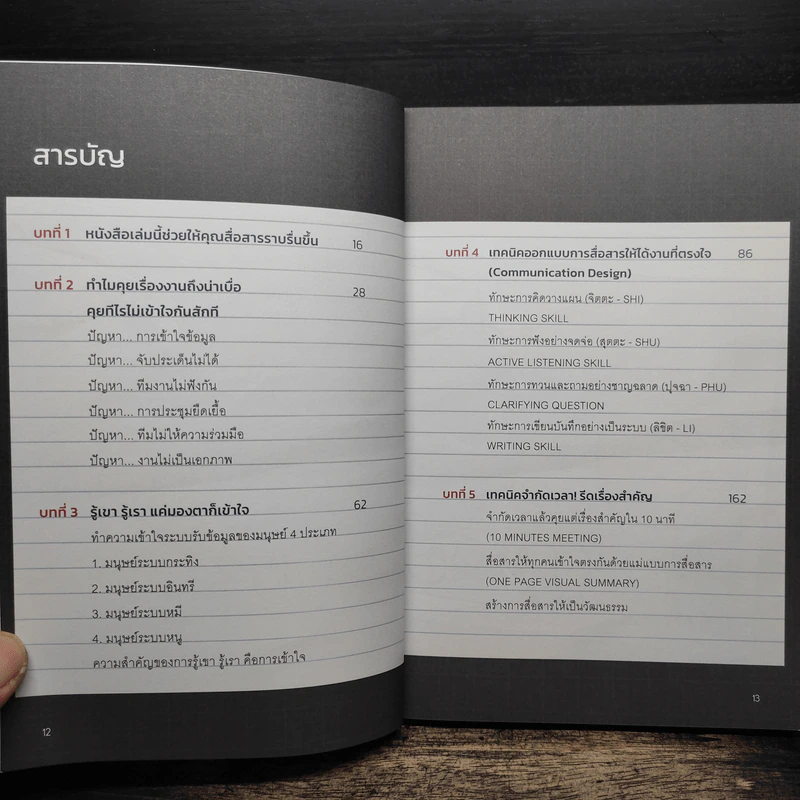 สารบัญ
บทที่ 1 หนังสือเล่มนี้ช่วยให้คุณสื่อสารราบรื่นขึ้น 16
บทที่ 2 ทำไมคุยเรื่องงานถึงน่าเบื่อ 28
คุยทีไรไม่เข้าใจกันสักที
ปัญหา... การเข้าใจข้อมูล
ปัญหา... จับประเด็นไม่ได้
ปัญหา... ทีมงานไม่ฟังกัน
ปัญหา... การประชุมยืดเยื้อ
ปัญหา... ทีมไม่ให้ความร่วมมือ
ปัญหา... งานไม่เป็นเอกภาพ
บทที่ 3 รู้เขา รู้เรา แค่มองตาก็เข้าใจ 62
ทำความเข้าใจระบบรับข้อมูลของมนุษย์ 4 ประเภท
1. มนุษย์ระบบกระทิง
2. มนุษย์ระบบอินทรี
3. มนุษย์ระบบหมี
4. มนุษย์ระบบหนู
ความสำคัญของการรู้เขา รู้เรา คือการเข้าใจ
12
บทที่ 4 เทคนิคออกแบบการสื่อสารให้ได้งานที่ตรงใจ 86
(Communication Design)
ทักษะการคิดวางแผน (จิตตะ - SHI)
THINKING SKILL
ทักษะการฟังอย่างจดจ่อ (สุตตะ - SHU)
ACTIVE LISTENING SKILL
ทักษะการทวนและถามอย่างชาญฉลาด (ปุจฉา - PHU)
CLARIFYING QUESTION
ทักษะการเขียนบันทึกอย่างเป็นระบบ (ลิขิต - LI)
WRITING SKILL
บทที่ 5 เทคนิคจำกัดเวลา! รีดเรื่องสำคัญ 162
จำกัดเวลาแล้วคุยแต่เรื่องสำคัญใน 10 นาที
(10 MINUTES MEETING)
สื่อสารให้ทุกคนเข้าใจตรงกันด้วยแม่แบบการสื่อสาร
(ONE PAGE VISUAL SUMMARY)
สร้างการสื่อสารให้เป็นวัฒนธรรม
13